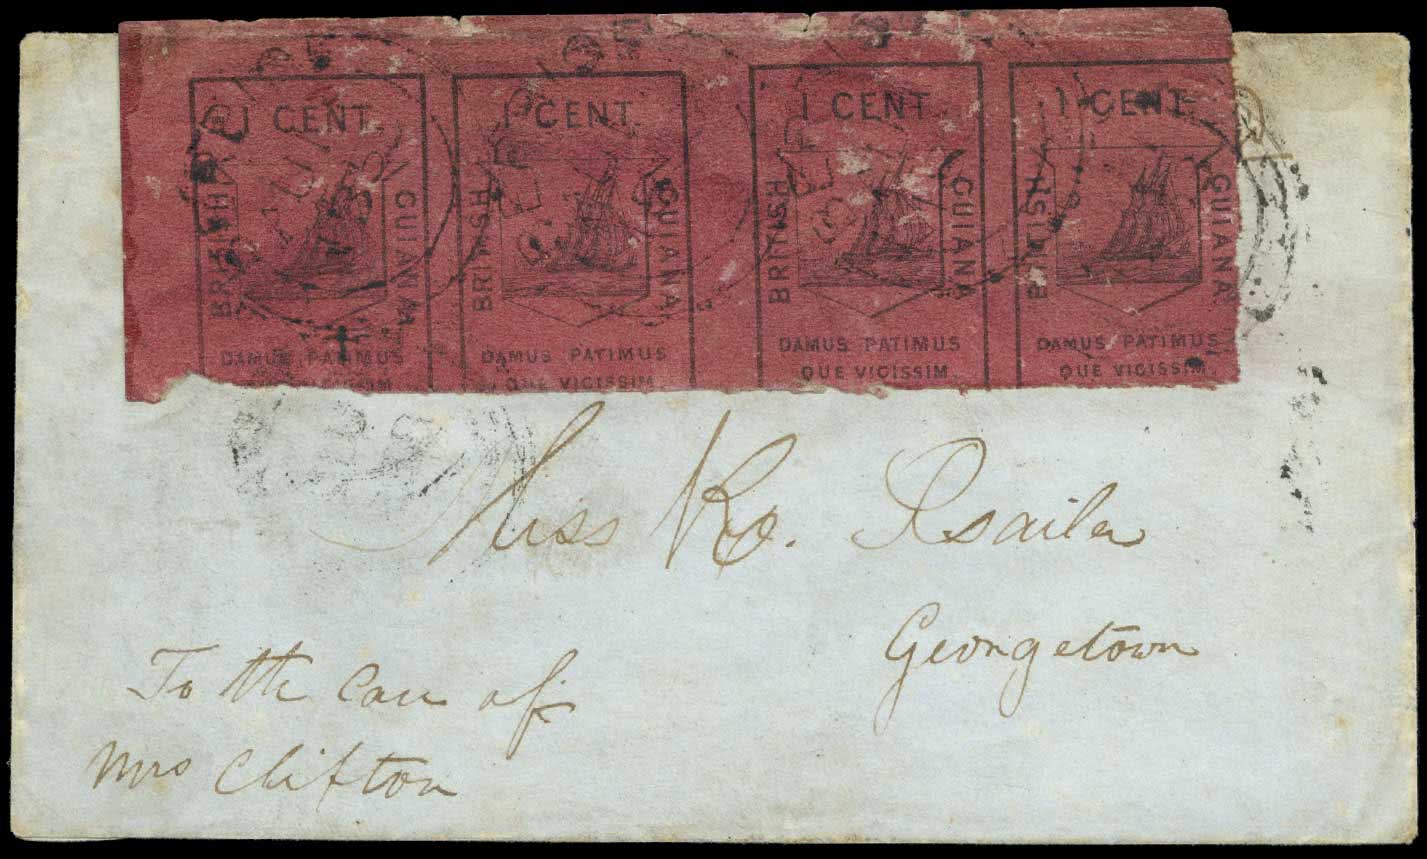 1 CENT. 1 CENT. 1 CENT. 1 CENT.
BRITISH GUIANA. BRITISH GUIANA. BRITISH GUIANA. BRITISH GUIANA.
DAMUS PATIMUS DAMUS PATIMUS DAMUS PATIMUS DAMUS PATIMUS
QUE VICISSIM. QUE VICISSIM. QUE VICISSIM.
Miss Ro.
Georgetown
To the Care of
Mrs Clifton